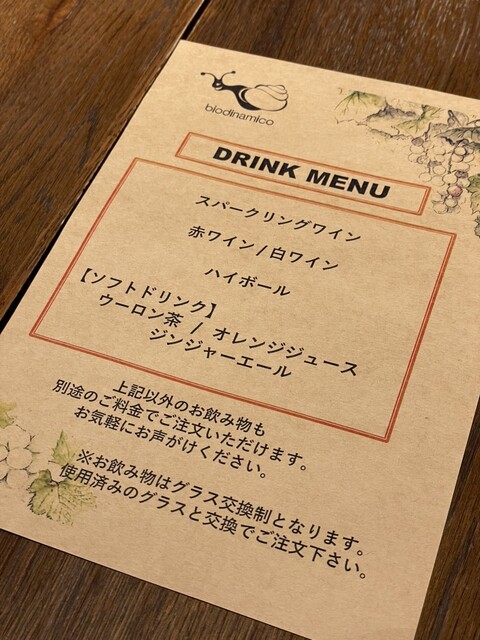 biodinamico
DRINK MENU
スパークリングワイン
赤ワイン / 白ワイン
ハイボール
【ソフトドリンク】
ウーロン茶 / オレンジジュース
ジンジャーエール
上記以外のお飲み物も
別途のご料金でご注文いただけます。
お気軽にお声がけください。
※お飲み物はグラス交換制となります。
使用済みのグラスと交換でご注文下さい。